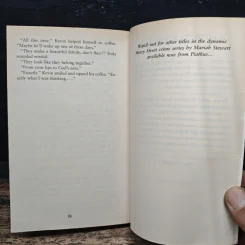 "All this time." Kevin helped himself to coffee.
"Maybe he'll wake up one of these days."
"They make a beautiful family, don't they?" Trudy
sounded wistful.
"They look like they belong together."
"From your lips to God's ears."
"Exactly." Kevin smiled and sipped his coffee. "Ex-
actly what I was thinking...."
Watch out for other titles in the dynamic
Mercy Street crime series by Mariah Stewart
available now from Piatkus...